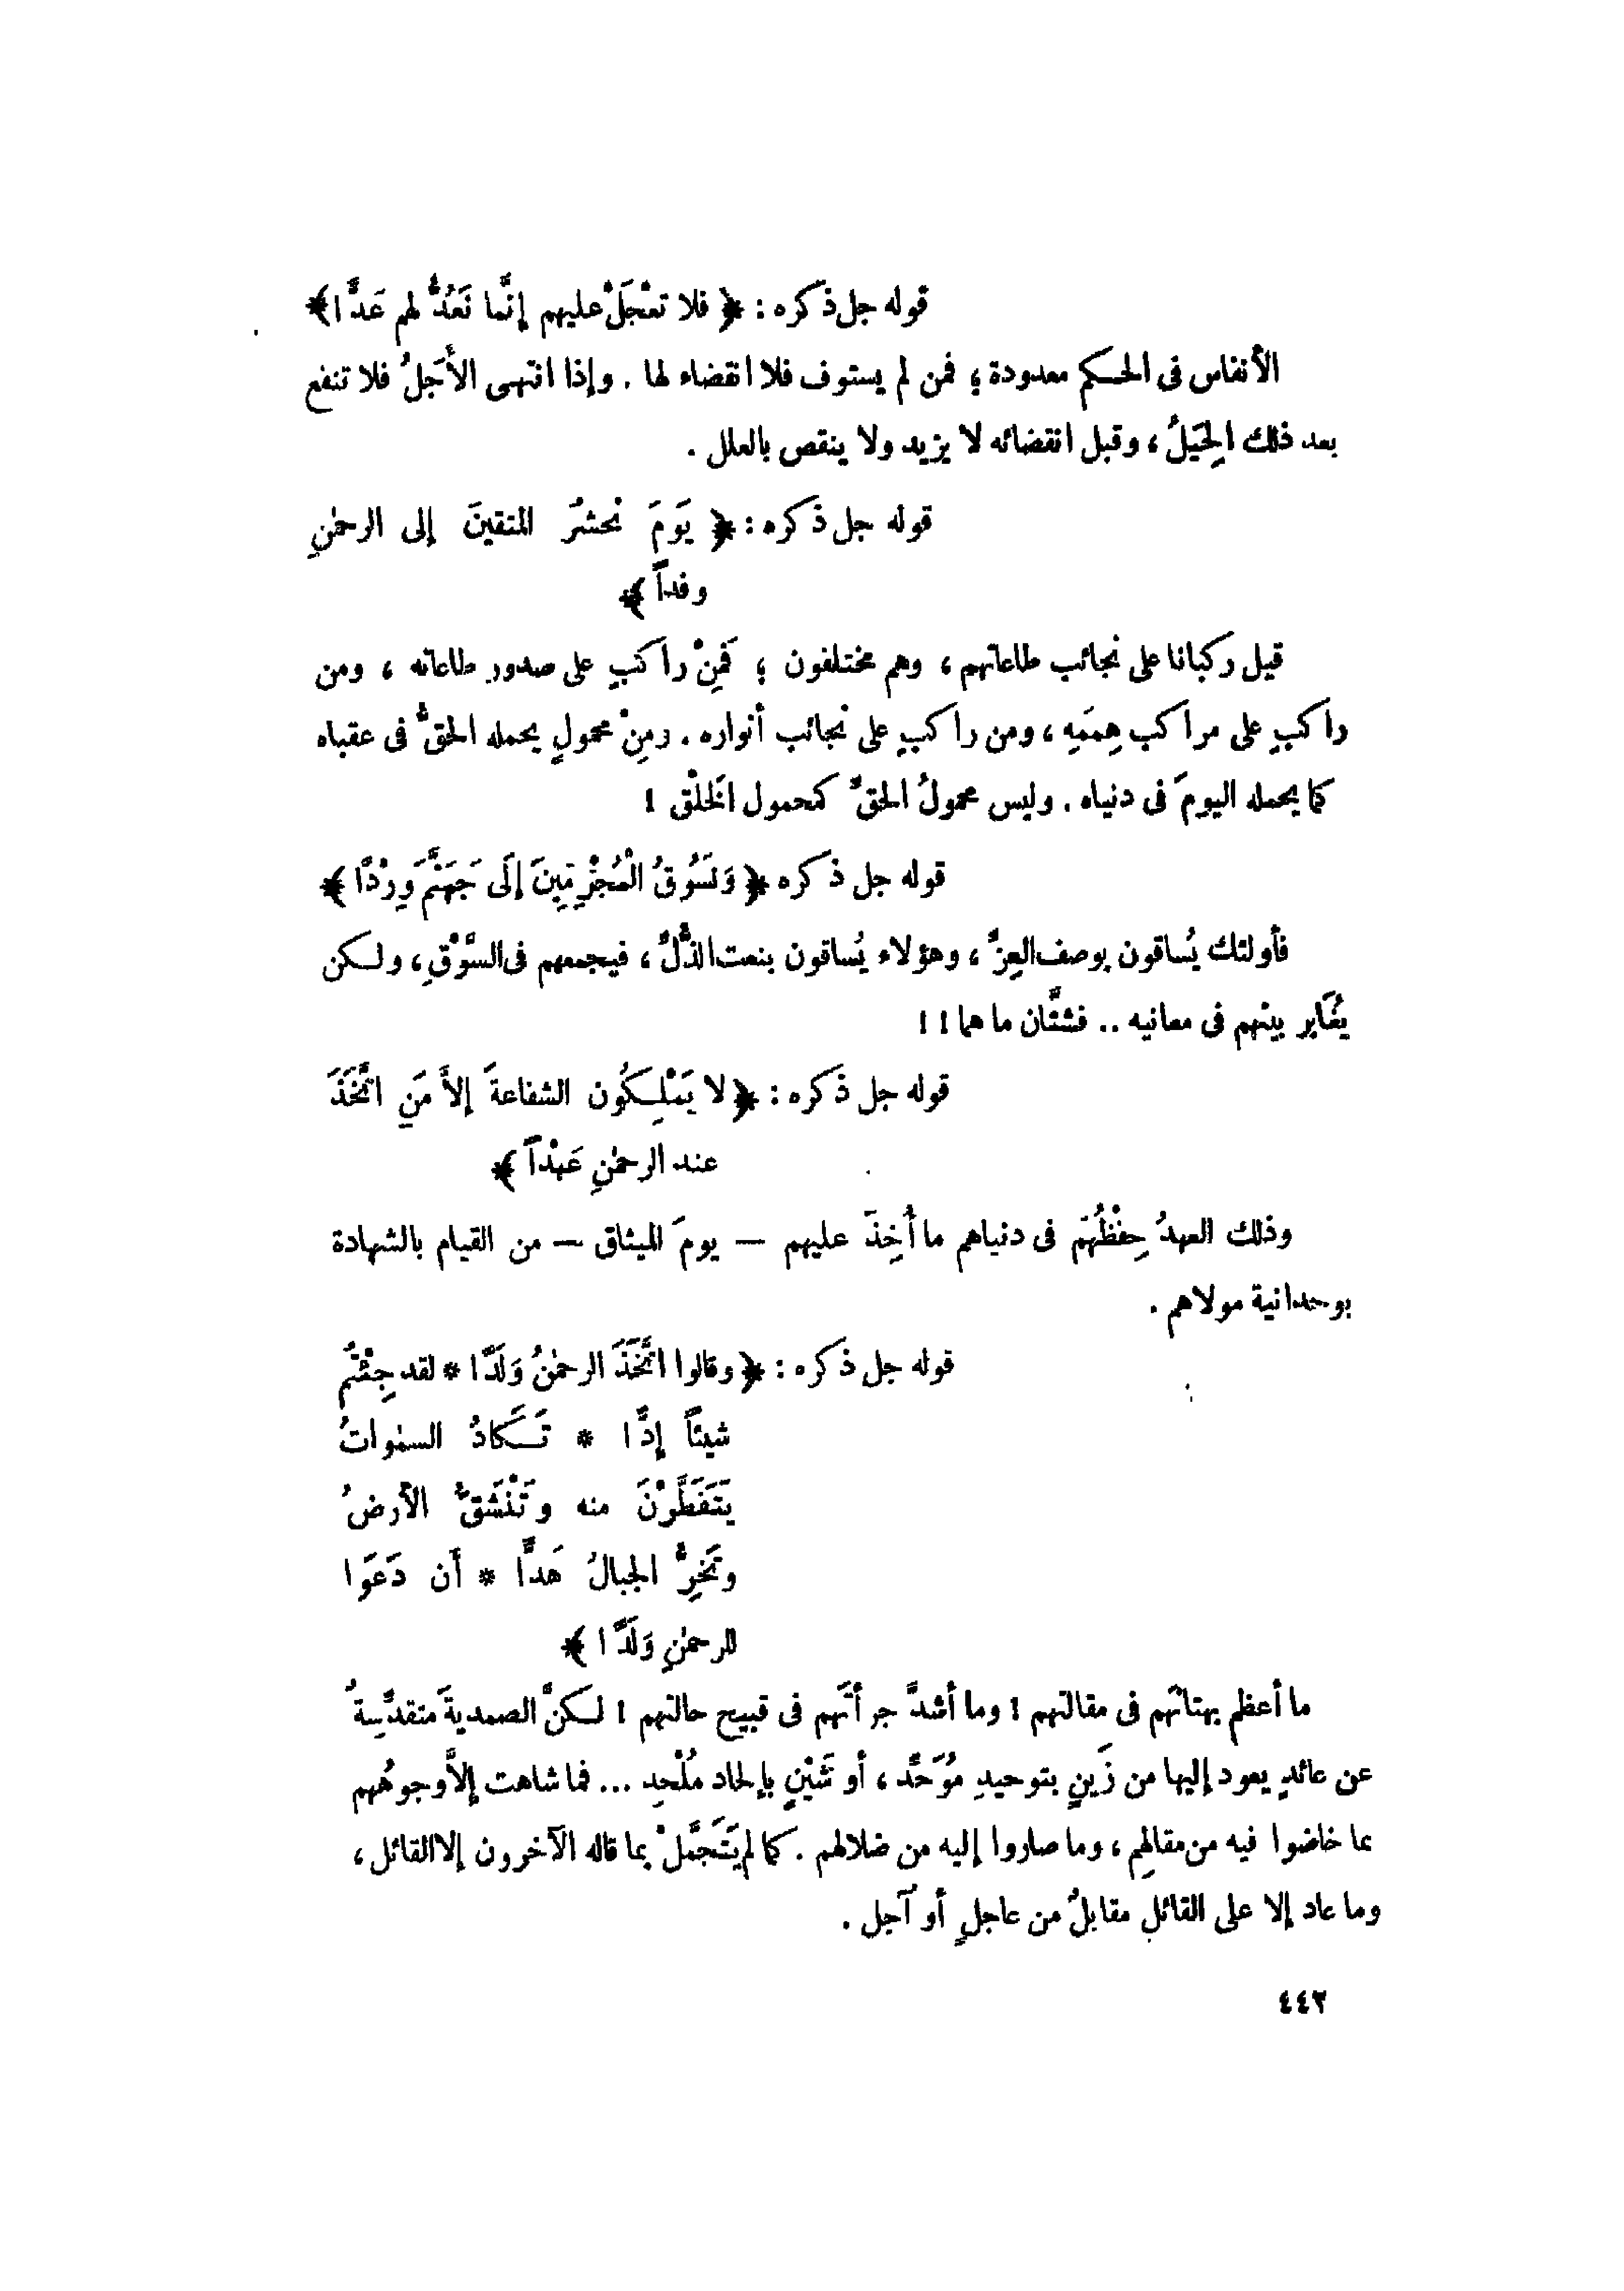 قوله جل ذكره : ﴿ فلا تعْجَلْ عليهم إنَّما نَعُدُّ لهم عَدًّا ﴾
الأنفاس فى الحكم معدودة ؛ فمن لم يستوف فلا انقضاء لها . وإذا انتهى الأَجَلُ فلا تنفع
بعد ذلك الحِيَلُ ، وقبل انقضائه لا يزيد ولا ينقص بالعلل .
قوله جل ذكره : ﴿ يَومَ نحشرُ المتقينَ إلى الرحمٰنِ
وفداً ﴾
قيل ركبانا على نجائب طاعاتهم ، وهم مختلفون ؛ فَمِنْ راكبٍ على صدور طاعاته ، ومن
راكبٍ على مراكب هِممَهِ ، ومن راكبٍ على نجائب أنواره . ومِنْ محمولٍ يحمله الحقُّ فى عقباه
كما يحمله اليومَ فى دنياه . وليس محمولُ الحقِّ كمحمول الخَلْق !
قوله جل ذكره ﴿ وَنَسُوقُ الْمُجْرِمِينَ إلَى جَهَنَّمَ وِرْدًا ﴾
فأولئك يُساقون بوصف العِزِّ ، وهؤلاء يُساقون بنعت الذُّلِّ ، فيجمعهم فى السَّوْقِ ، ولكن
يُغَاير بينهم فى معانيه .. فشتَّان ما هما ! !
قوله جل ذكره : ﴿ لا يَمْلِكُون الشفاعةَ إلاَّ مَنِ اتَّخَذَ
عند الرحمٰنِ عَهْداً ﴾
وذلك العهدُ حِفْظُهُم فى دنياهم ما أُخِذَ عليهم — يومَ الميثاق — من القيام بالشهادة
بوحدانية مولاهم .
قوله جل ذكره : ﴿ وقالوا اتَّخَذَ الرحمٰنُ وَلَدًا * لقد جِئْتُم
شيئاً إدًّا * تَكَادُ السمٰواتُ
يَتَفَطَّرْنَ منه وتَنْشَقُّ الأرضُ
وتَخِرُّ الجبالُ هَدًّا * أَن دَعَوا
للرحمٰنِ وَلَدًا ﴾
ما أعظم بهتانَهم فى مقالتهم ! وما أشدَّ جرأتَهم فى قبيح حالتهم ! لكنَّ الصمديةَ متقدِّسةٌ
عن عائدٍ يعود إليها من زَينٍ بتوحيدِ مُوَحِّد ، أو شَيْنٍ بإلحاد مُلْحِد ... فما شاهت إلاَّ وجوهُهم
بما خاضوا فيه من مقالهِم ، وما صاروا إليه من ضلالهم . كما لم يَتَجَمَّلْ بما قاله الآخرون إلا القائل ،
وما عاد إلا على القائلِ مقابلٌ من عاجلٍ أو آجل .
٤٤٣